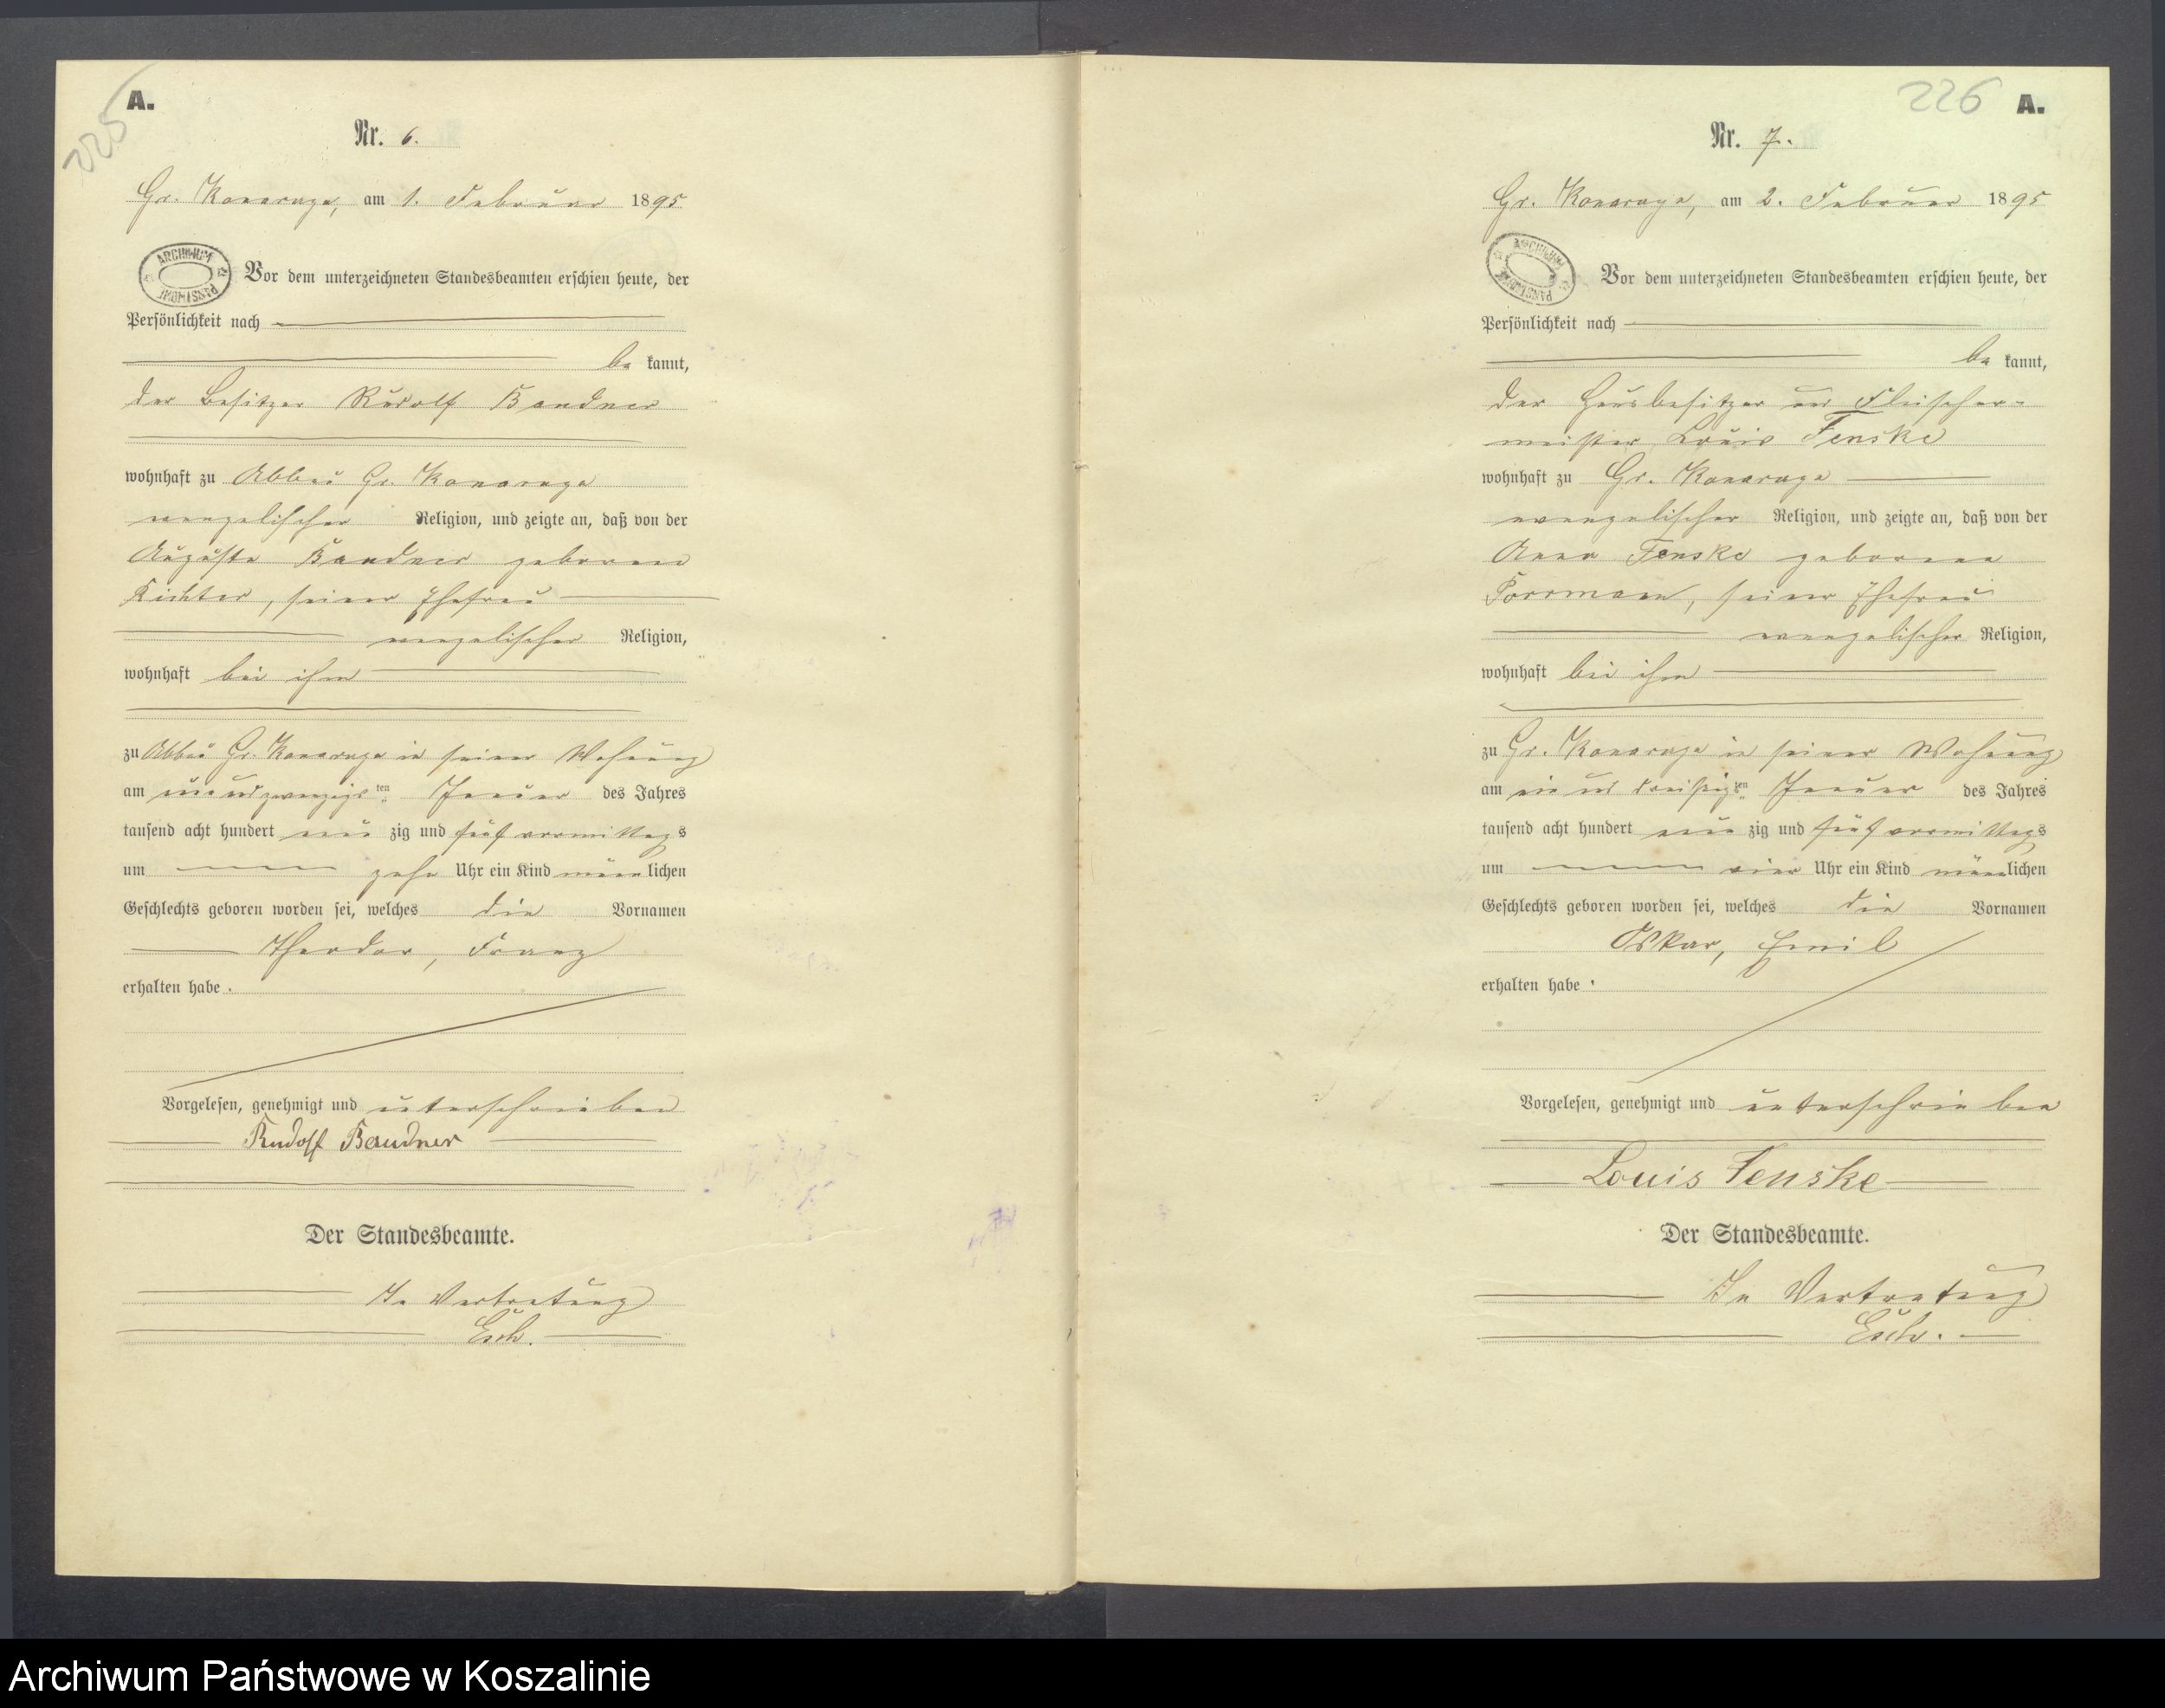 225
A.
Nr. 6.
Gr. Konarczyn, am 1. Februar 1895
ARCHIWUM PAŃSTWOWE
Vor dem unterzeichneten Standesbeamten erschien heute, der
Persönlichkeit nach
be kannt,
der Besitzer Rudolf Bandner
wohnhaft zu Abbau Gr. Konarczyn
evangelischer Religion, und zeigte an, daß von der
Auguste Bandner geborene
Richter, seiner Ehefrau
evangelischer Religion,
wohnhaft bei ihm
zu Abbau Gr. Konarczyn in seiner Wohnung
am und zwanzigsten Januar des Jahres
tausend acht hundert neun zig und fünf vormittags
um zehn Uhr ein Kind männlichen
Geschlechts geboren worden sei, welches die Vornamen
Theodor, Franz
erhalten habe.
Vorgelesen, genehmigt und unterschrieben
Rudolf Bandner
Der Standesbeamte.
In Vertretung
226 A.
Nr. 7.
Gr. Konarczyn, am 2. Februar 1895
ARCHIWUM PAŃSTWOWE
Vor dem unterzeichneten Standesbeamten erschien heute, der
Persönlichkeit nach
be kannt,
der Hausbesitzer und Fleischer-
meister Louis Fenske
wohnhaft zu Gr. Konarczyn
evangelischer Religion, und zeigte an, daß von der
Anna Fenske geborene
seiner Ehefrau
evangelischer Religion,
wohnhaft bei ihm
zu Gr. Konarczyn in seiner Wohnung
am ein und dreißigsten Januar des Jahres
tausend acht hundert neun zig und fünf vormittags
um vier Uhr ein Kind männlichen
Geschlechts geboren worden sei, welches die Vornamen
Oskar, Emil
erhalten habe.
Vorgelesen, genehmigt und unterschrieben
Louis Fenske
Der Standesbeamte.
In Vertretung
Archiwum Państwowe w Koszalinie